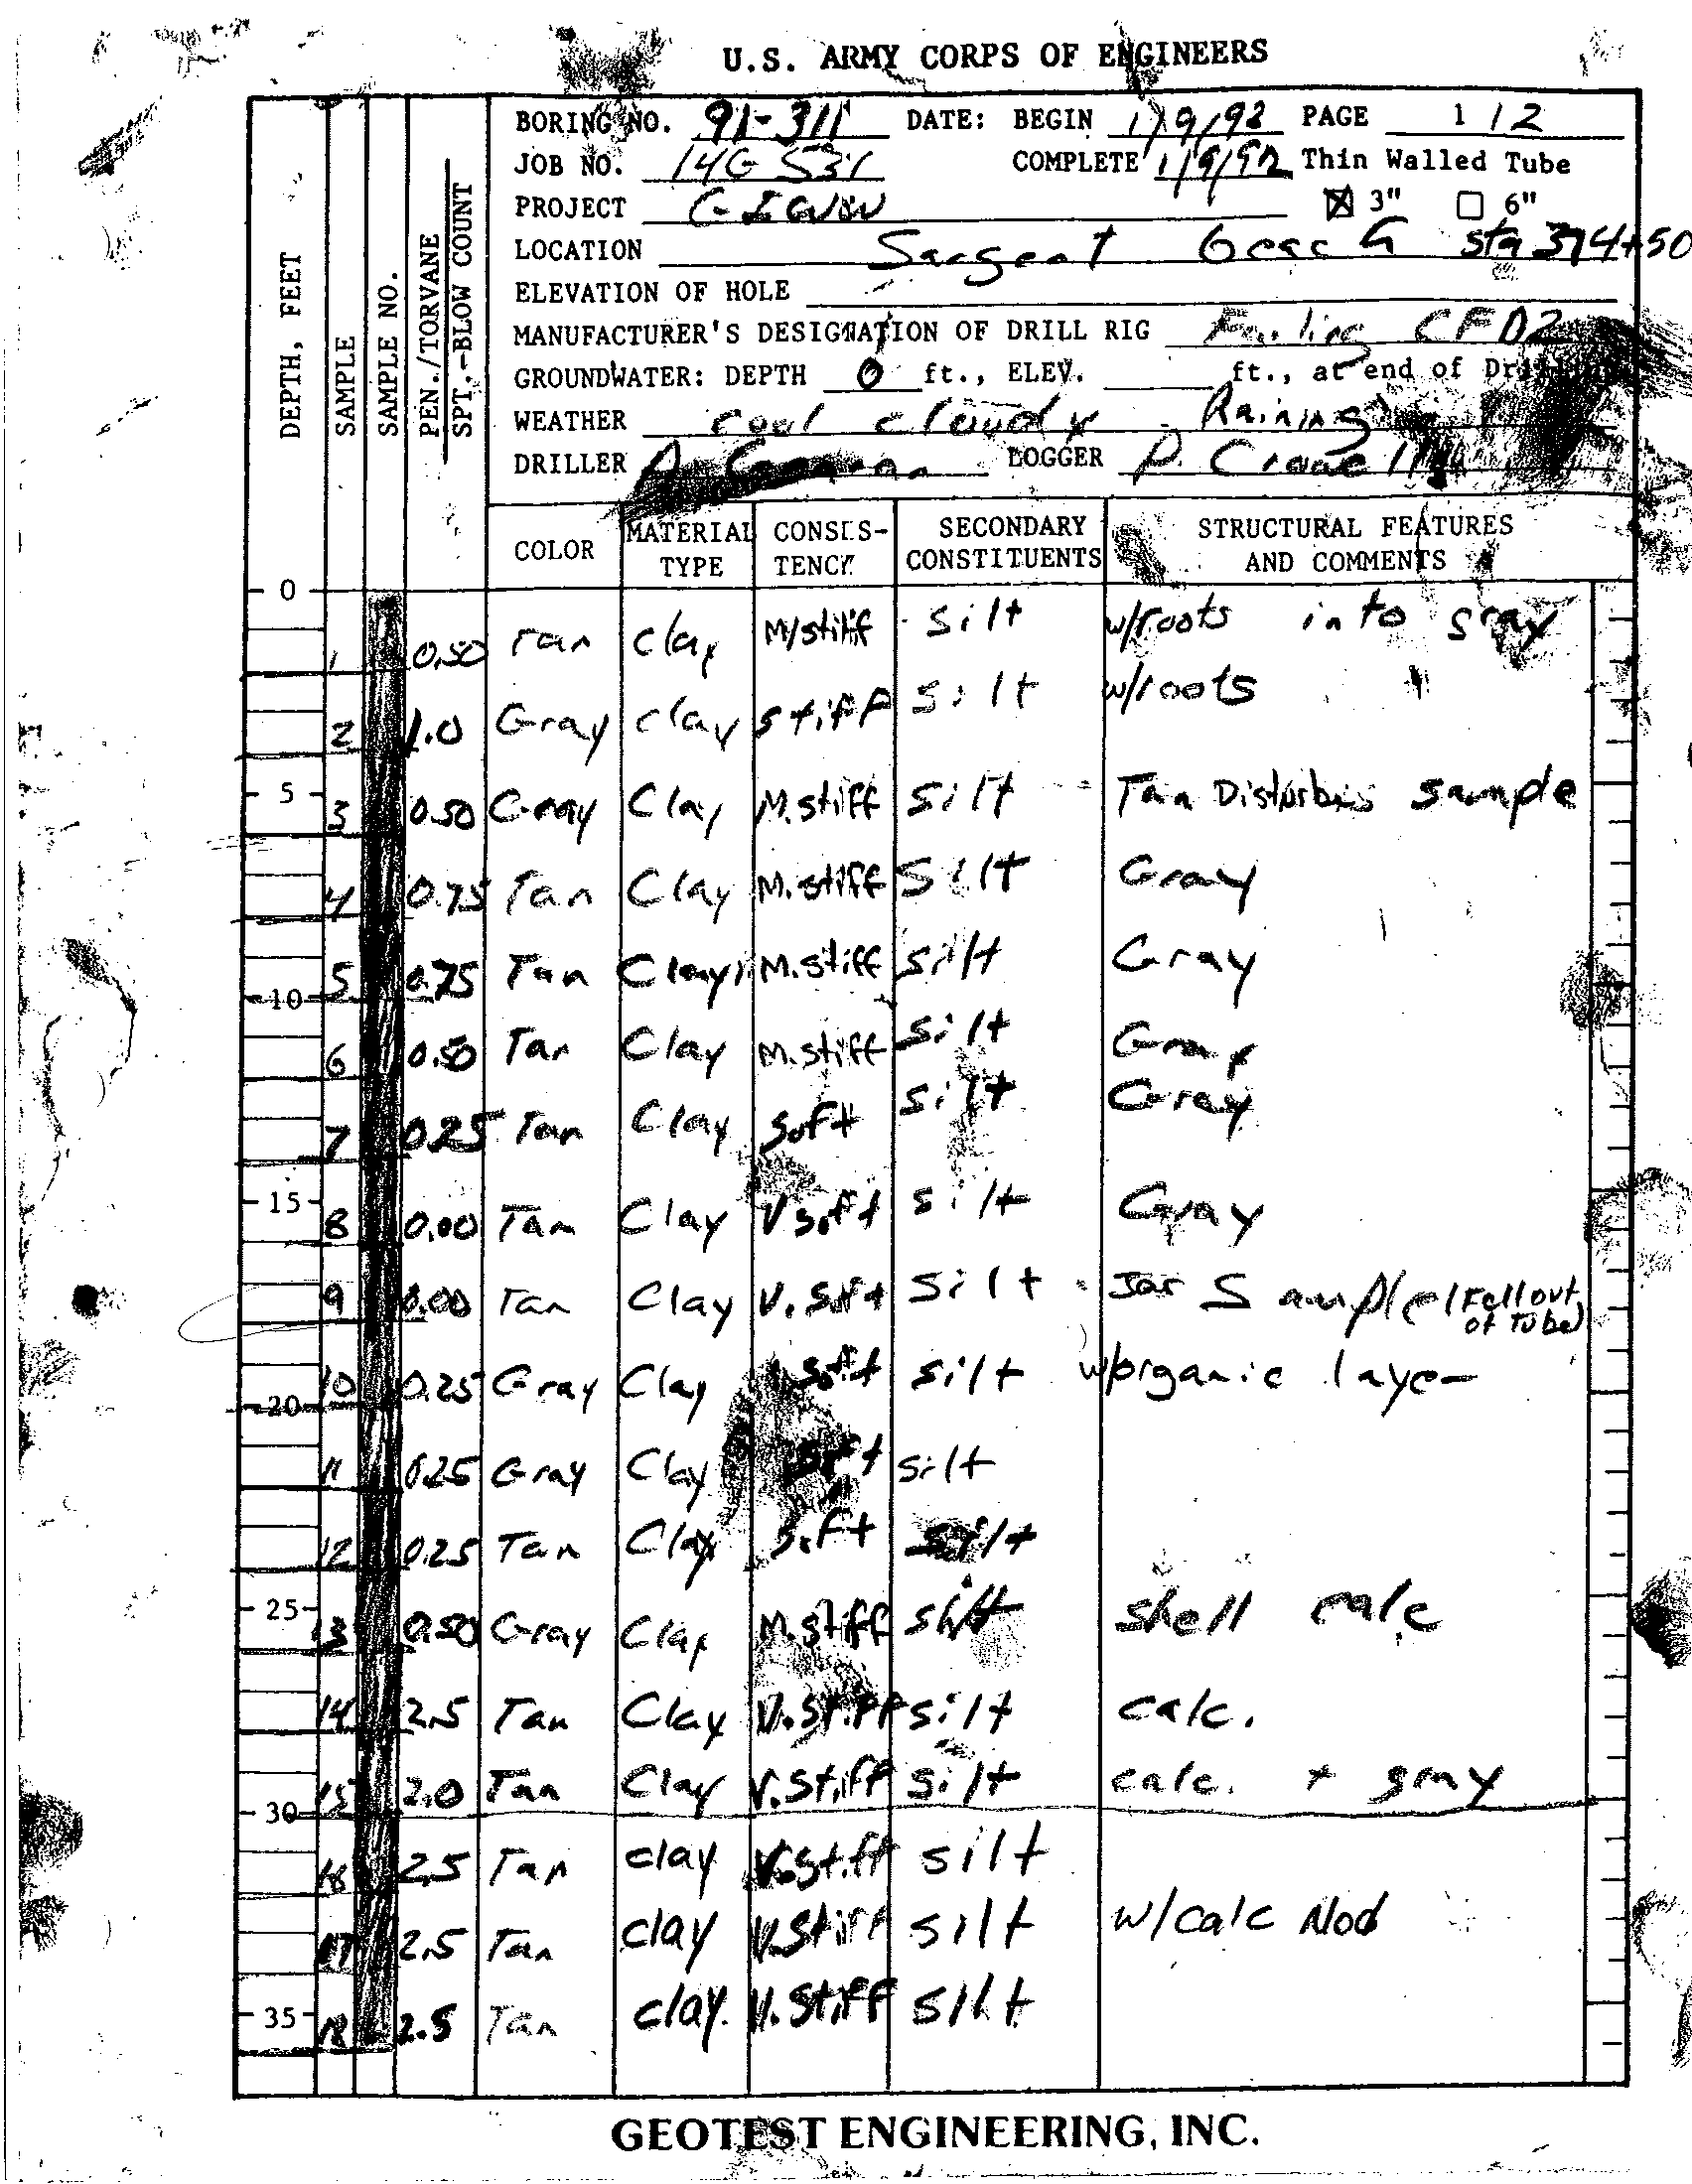 U.S. ARMY CORPS OF ENGINEERS
BORING NO. 91-311 DATE: BEGIN 1/9/92 PAGE 1/2
JOB NO. 14G 531 COMPLETE 1/9/92 Thin Walled Tube
PROJECT GIWW 3" 6"
LOCATION Sargent Beach Sta 374+50
ELEVATION OF HOLE
MANUFACTURER'S DESIGNATION OF DRILL RIG Failing
GROUNDWATER: DEPTH 0 ft., ELEV. ft., at end of Drilling
WEATHER cool cloudy Raining
DRILLER LOGGER P.
DEPTH, FEET SAMPLE SAMPLE NO. PEN./TORVANE SPT.-BLOW COUNT
COLOR MATERIAL TYPE CONSISTENCY SECONDARY CONSTITUENTS STRUCTURAL FEATURES AND COMMENTS
0
1 0.50 Tan Clay M/stiff silt w/roots into gray
2 1.0 Gray clay stiff silt w/roots
5
3 0.50 Gray Clay M.stiff silt Tan Disturbed sample
4 0.75 Tan Clay M.stiff silt Gray
5 0.75 Tan Clay M.stiff silt Gray
10
6 0.50 Tan Clay M.stiff silt Gray
7 0.25 Tan Clay soft silt Gray
15
8 0.00 Tan Clay V soft silt Gray
9 0.00 Tan Clay V. soft silt Jar Sample (Fell out of Tube)
10 0.25 Gray Clay soft silt w/organic layer
20
11 0.25 Gray Clay soft silt
12 0.25 Tan Clay soft silt
25
13 0.50 Gray Clay M.stiff silt shell calc
14 2.5 Tan Clay V.stiff silt calc.
15 2.0 Tan Clay V.stiff silt calc. + gray
30
16 2.5 Tan clay V.stiff silt
17 2.5 Tan clay V.stiff silt w/calc Nod
35
18 2.5 Tan clay. V.stiff silt
GEOTEST ENGINEERING, INC.